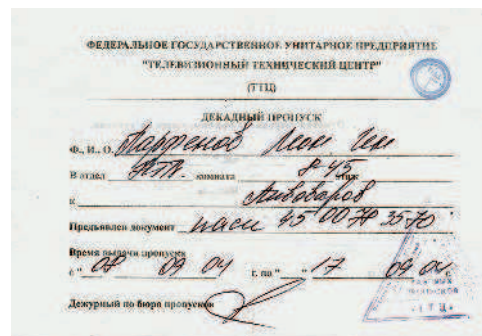 ФЕДЕРАЛЬНОЕ ГОСУДАРСТВЕННОЕ УНИТАРНОЕ ПРЕДПРИЯТИЕ
"ТЕЛЕВИЗИОННЫЙ ТЕХНИЧЕСКИЙ ЦЕНТР"
(ТТЦ)
ДЕКАДНЫЙ ПРОПУСК
Ф., И., О. Парфенов Леон. Ген
В отдел комната 8-45 этаж
к Пивоваров
Предъявлен документ пасп 45 00 78 35-70
Время выдачи пропуска
с " 08 09 04 г. по " " 17 09 04 г.
Дежурный по бюро пропусков
ТТЦ